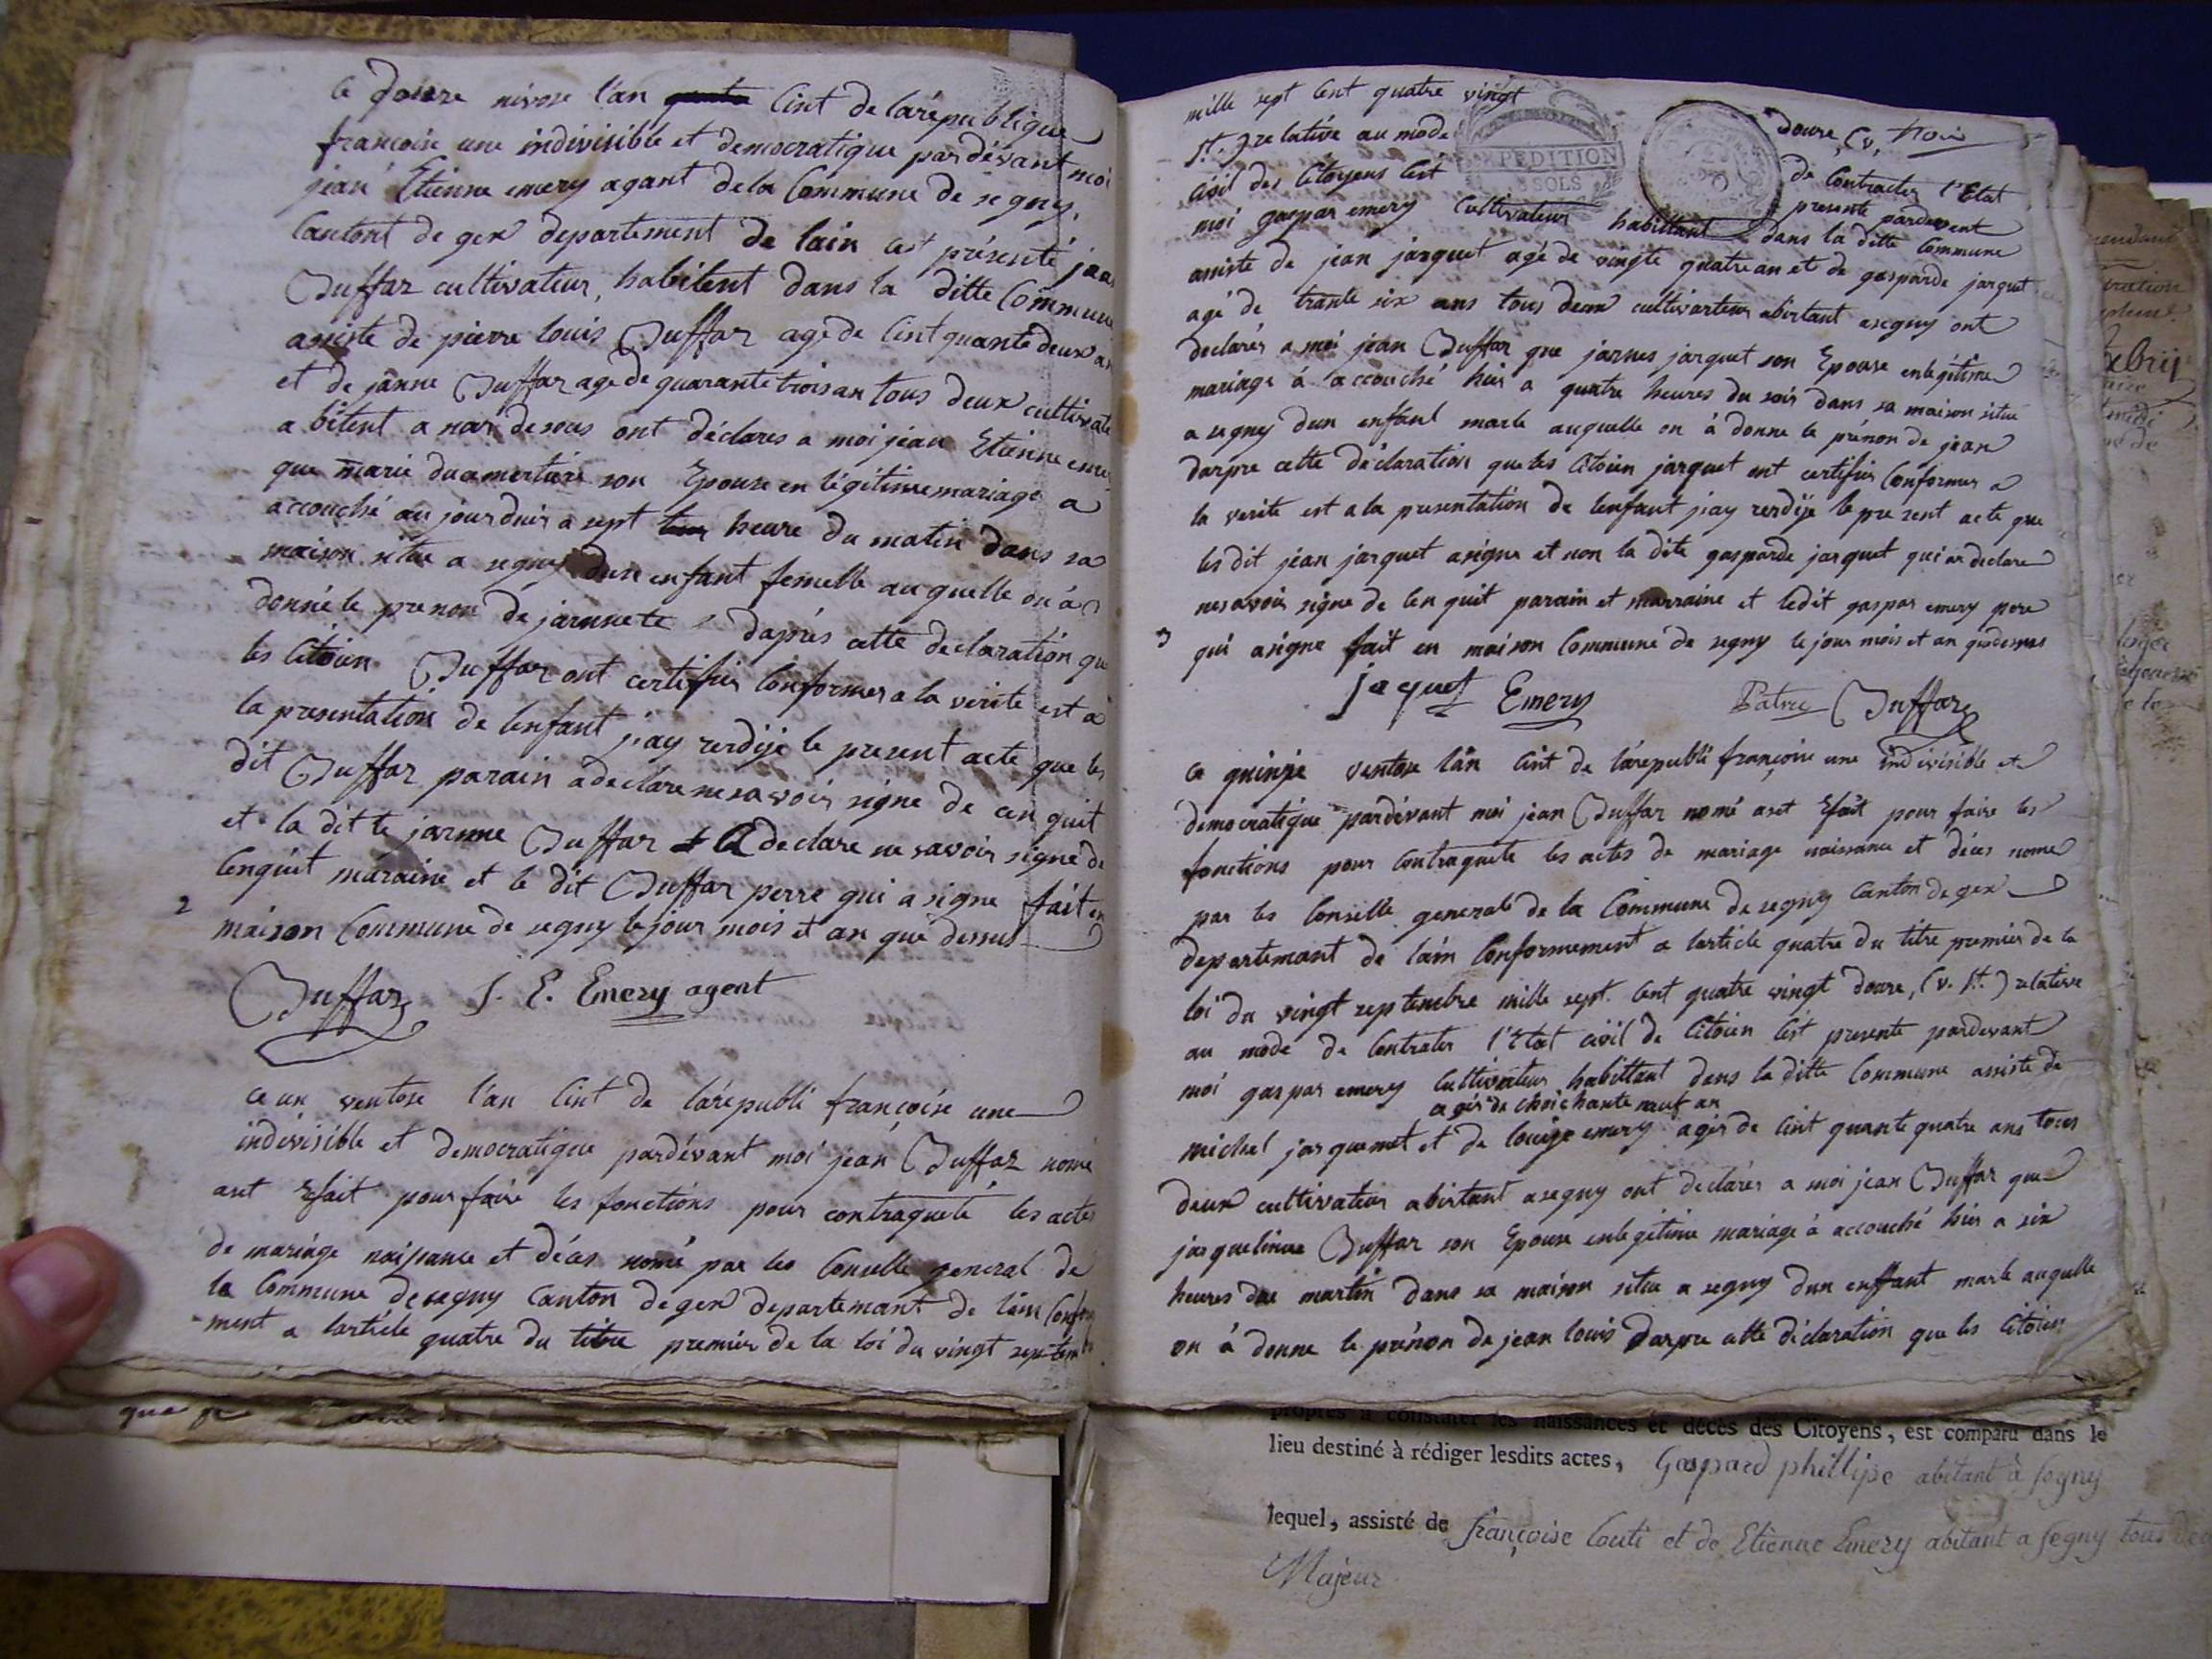 ce douze nivose l'an cint de larépublique
francoise une indivisible et democratique pardévant moi
jean Etienne emery agant dela Commune de segny,
Cantont de gex departement de lain cest présenté jean
Duffar cultivateur, habitent dans la ditte Commune
assiste de pierre louis Duffar age de cint quante deux an
et de janne Duffar age de quarante trois an tous deux cultivate
abitent a desous ont déclares a moi jean Etienne emer
que marie son Epouse en légitime mariage a
accouché au jourduis a sept heure du matin dans sa
maison situe a segny dun enfant femelle auquelle on à
donné le prenon de jarnnete daprés cette declaration que
les Citoien Duffar ont certifies Conformes a la verite est a
la presentation de lenfant j'ay rerdije le present acte que les
dit Duffar parain a declare ne savoir signe de cen quit
et la ditte jarnne Duffar a declare ne savoir signe de
Cenquit maraine et le dit Duffar perre qui a signe fait en
2
maison Commune de segny le jour mois et an que dessus
Duffar J. E. Emery agent
ce un ventose l'an Cint de larépubli françoise une
indivisible et democratique pardévant moi jean Duffar nome
aset Efait pour faire les fonctions pour contraquete les actes
de mariage naissance et déces nomé par les Conselle general de
la Commune de segny Canton de gex departemant de lain Confor
ment a lartícle quatre du titre premier de la loi du vingt septem
mille sept Cent quatre vingt douze, (v.
st.) relative au mode de Contracter l'Etat
civil des Citoyens Cest presente pardevent
moi gaspar emery Cultivateur habittant dans la ditte Commune
assiste de jean jarquet agé de vingte quatre an et de gasparde jarquet
agé de trante six ans tous deux cultivarteur abirtant a segny ont
declarés a moi jean Duffar que jarquet son Epouse enlégitime
mariage à accouché hier a quatre heures du soir dans sa maison situe
a segny dun enfant marle auquelle on à donne le prénon de jean
darpre cette déclaration que les Citoien jarquet ont certifies Conformes a
la verite est a la presentation de lenfant j'ay rerdije le pre sent acte que
les dit jean jarquet a signe et non la dite gasparde jarquet qui a declare
ne savoir signe de Cen quit parain et marraine et ledit gaspar emery pere
3
qui a signe fait en maison Commune de segny le jour mois et an quedessus
jaquet Emery Duffar
ce quinze ventose lan Cint de larépubli françoise une indivisible et
democratique pardévant moi jean Duffar nomé aset Efait pour faire les
fonctions pour Contraquete les actes de mariage naissance et déces nome
par les Conselle general de la Commune de segny Canton de gex
departemant de lain Conformement a larticle quatre du titre premier de la
loi du vingt septembre mille sept Cent quatre vingt douze, (v. st.) relative
au mode de Contrater l'Etat civil de Citoien Cest presente pardevant
moi gaspar emery Cultivateur habittant dans la ditte Commune assiste de
agér de choichante neuf an
michel jarquemet et de louise emery agér de cint quante quatre ans tous
deux cultivateur abirtant a segny ont declarés a moi jean Duffar que
jarquelinne Duffar son Epouse enlegitime mariage à accouché hier a six
heures du martin dans sa maison situe a segny dun enffant marle auquelle
on à donne le prénon de jean louis darpre cette déclaration que les Citoien
propres à constater les naissances et décès des Citoyens, est comparu dans le
lieu destiné à rédiger lesdits actes, Gaspard phillipe abitant à segny
lequel, assisté de françoise Couti et de Etienne Emery abitant a segny tous deu
Majeur
EXPEDITION
SOLS